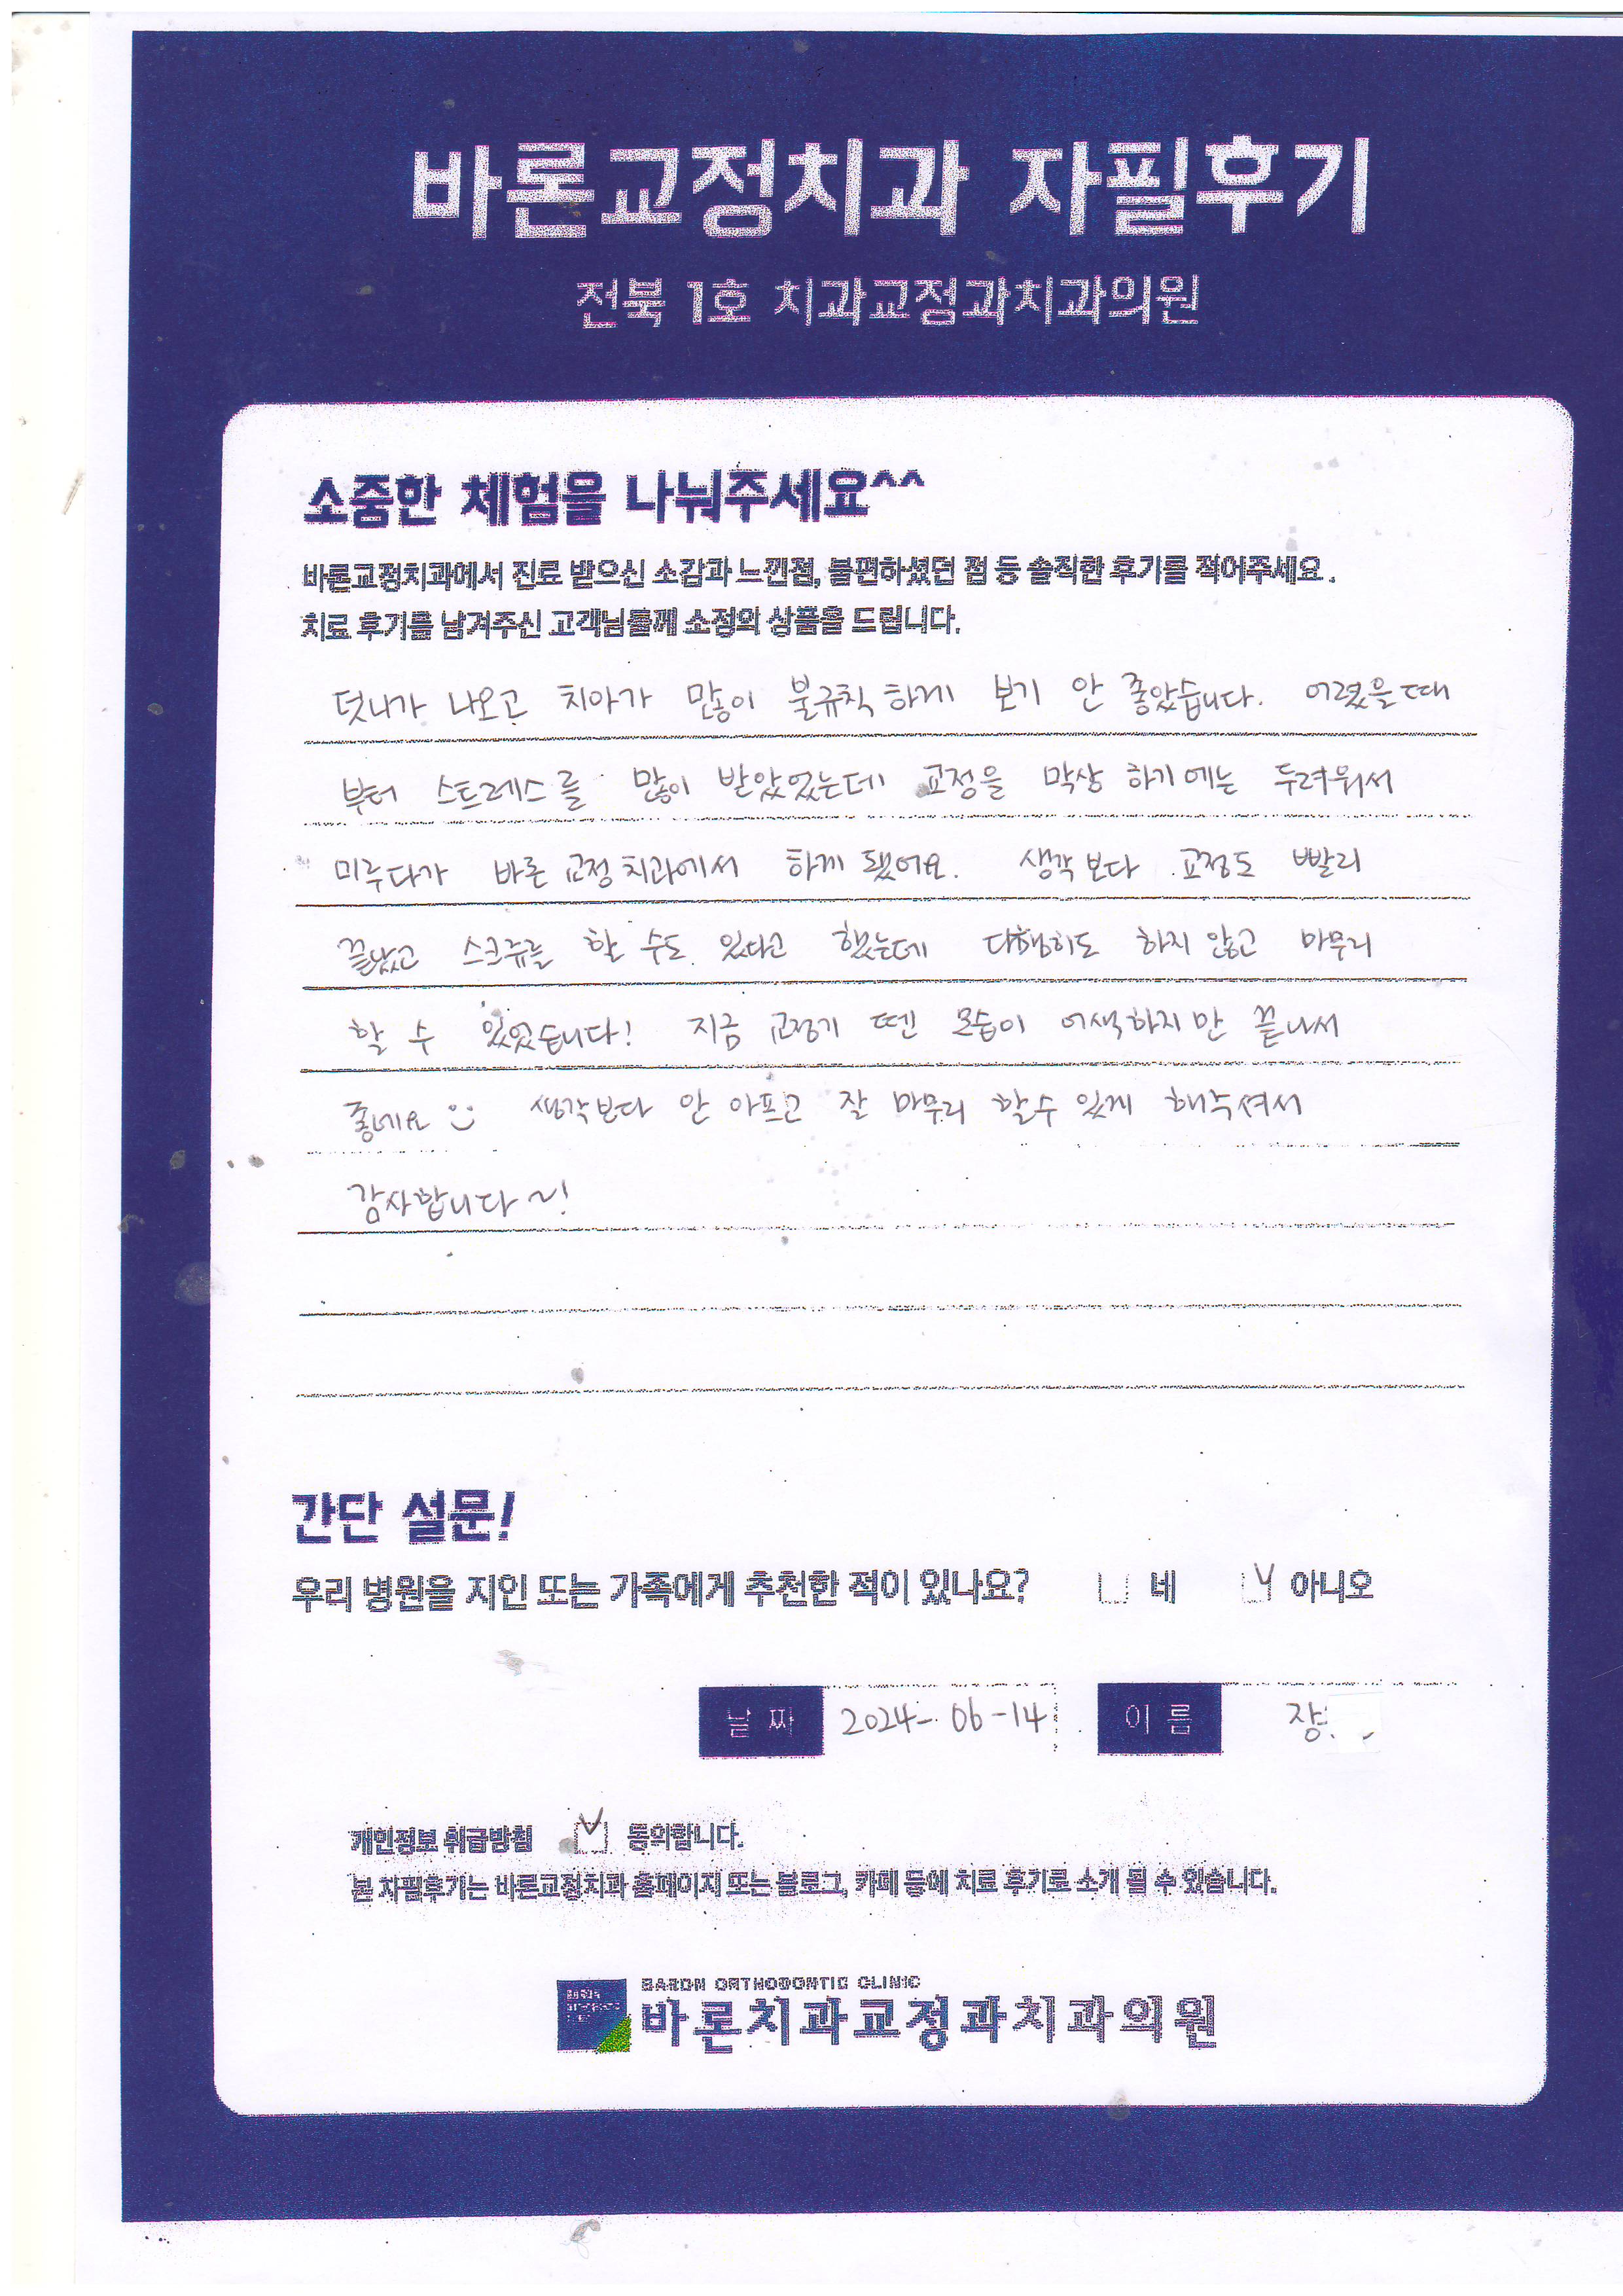 바론교정치과 자필후기
전북 1호 치과교정과치과의원
소중한 체험을 나눠주세요^^
바른교정치과에서 진료 받으신 소감과 느낀점, 불편하셨던 점 등 솔직한 후기를 적어주세요.
치료 후기를 남겨주신 고객님들께 소정의 상품을 드립니다.
덧니가 나오고 치아가 많이 불규칙하게 보기 안 좋았습니다. 어렸을때
부터 스트레스를 많이 받았었는데 교정을 막상 하기에는 두려워서
미루다가 바론 교정치과에서 하게 됐어요. 생각보다 교정도 빨리
끝났고 스크류를 할 수도 있다고 했는데 다행히도 하지 않고 마무리
할 수 있었습니다! 지금 교정기 뗀 모습이 어색하지만 끝나서
좋네요 생각보다 안 아프고 잘 마무리 할수 있게 해주셔서
감사합니다~!
간단 설문!
우리 병원을 지인 또는 가족에게 추천한 적이 있나요? 네 아니오
날짜 2024-06-14 이름 장
개인정보 취급방침 동의합니다.
본 자필후기는 바론교정치과 홈페이지 또는 블로그, 카페 등에 치료 후기로 소개 될 수 있습니다.
BARON ORTHODONTIC CLINIC
바론치과교정과치과의원